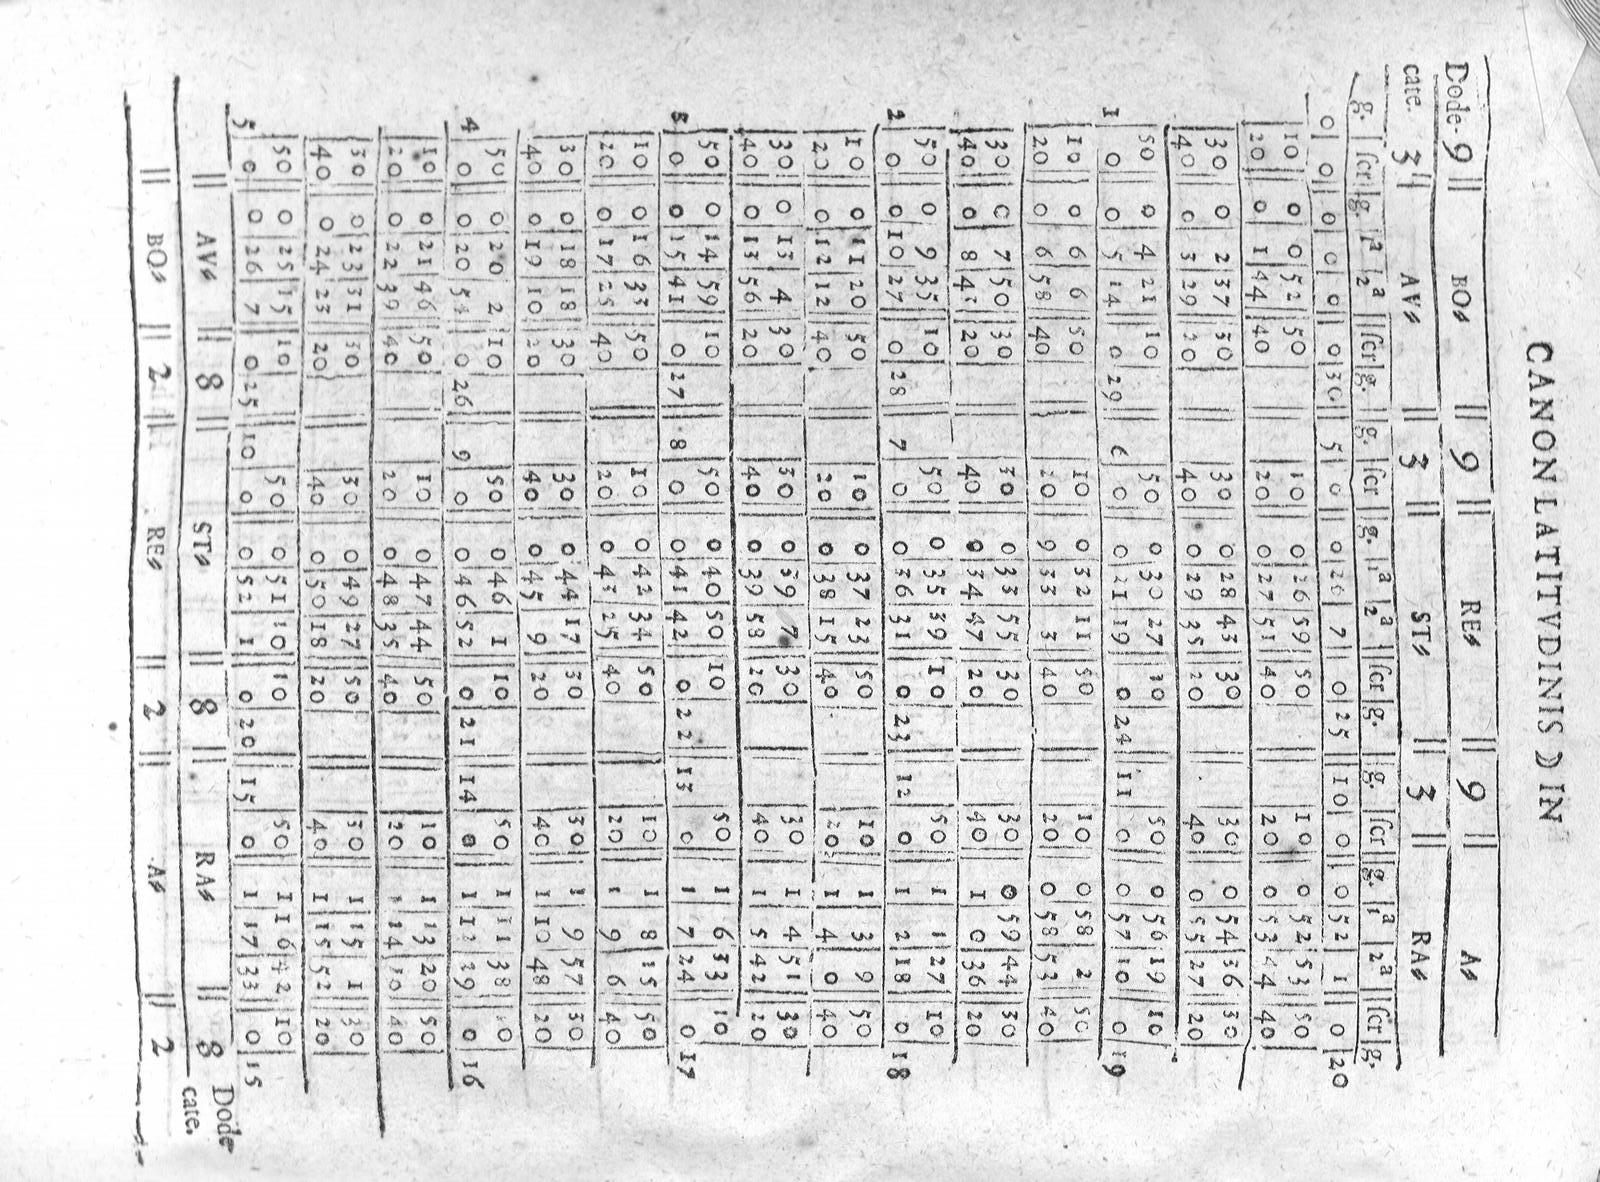 CANON LATITVDINIS ☽ IN
Dode- 9 || BO⸗ || 9 || RE⸗ || 9 || A⸗
cate. 3 || AV⸗ || 3 || ST⸗ || 3 || RA⸗
g. ſcr g. 1ª 2ª ſcr g. g. ſcr g. 1ª 2ª ſcr g. g. ſcr g. 1ª 2ª ſcr g.
0 0 0 0 0 0 30 5 0 0 26 7 0 25 10 0 0 52 1 0 20
10 0 0 52 50 10 0 26 59 50 10 0 52 53 50
20 0 1 44 40 20 0 27 51 40 20 0 53 44 40
30 0 2 37 30 30 0 28 43 30 30 0 54 36 30
40 0 3 29 20 40 0 29 35 20 40 0 55 27 20
50 0 4 21 10 50 0 30 27 10 50 0 56 19 10
1 0 0 5 14 0 29 6 0 0 31 19 0 24 11 0 0 57 10 0 19
10 0 6 6 50 10 0 32 11 50 10 0 58 2 50
20 0 6 58 40 20 9 33 3 40 20 0 58 53 40
30 0 7 50 30 30 0 33 55 30 30 0 59 44 30
40 0 8 43 20 40 0 34 47 20 40 1 0 36 20
50 0 9 35 10 50 0 35 39 10 50 1 1 27 10
2 0 0 10 27 0 28 7 0 0 36 31 0 23 12 0 1 2 18 0 18
10 0 11 20 50 10 0 37 23 50 10 1 3 9 50
20 0 12 12 40 20 0 38 15 40 20 1 4 0 40
30 0 13 4 30 30 0 39 7 30 30 1 4 51 30
40 0 13 56 20 40 0 39 58 20 40 1 5 42 20
50 0 14 59 10 50 0 40 50 10 50 1 6 33 10
3 0 0 15 41 0 27 8 0 0 41 42 0 22 13 0 1 7 24 0 17
10 0 16 33 50 10 0 42 34 50 10 1 8 15 50
20 0 17 25 40 20 0 43 25 40 20 1 9 6 40
30 0 18 18 30 30 0 44 17 30 30 1 9 57 30
40 0 19 10 20 40 0 45 9 20 40 1 10 48 20
50 0 20 2 10 50 0 46 1 10 50 1 11 38 10
4 0 0 20 54 0 26 9 0 0 46 52 0 21 14 0 1 12 39 0 16
10 0 21 46 50 10 0 47 44 50 10 1 13 20 50
20 0 22 39 40 20 0 48 35 40 20 1 14 10 40
30 0 23 31 30 30 0 49 27 30 30 1 15 1 30
40 0 24 23 20 40 0 50 18 20 40 1 15 52 20
50 0 25 15 10 50 0 51 10 10 50 1 16 42 10
5 0 0 26 7 0 25 10 0 0 52 1 0 20 15 0 1 17 33 0 15
|| AV⸗ || 8 || ST⸗ || 8 || RA⸗ || 8 Dode
|| BO⸗ || 2 || RE⸗ || 2 || A⸗ || 2 cate.